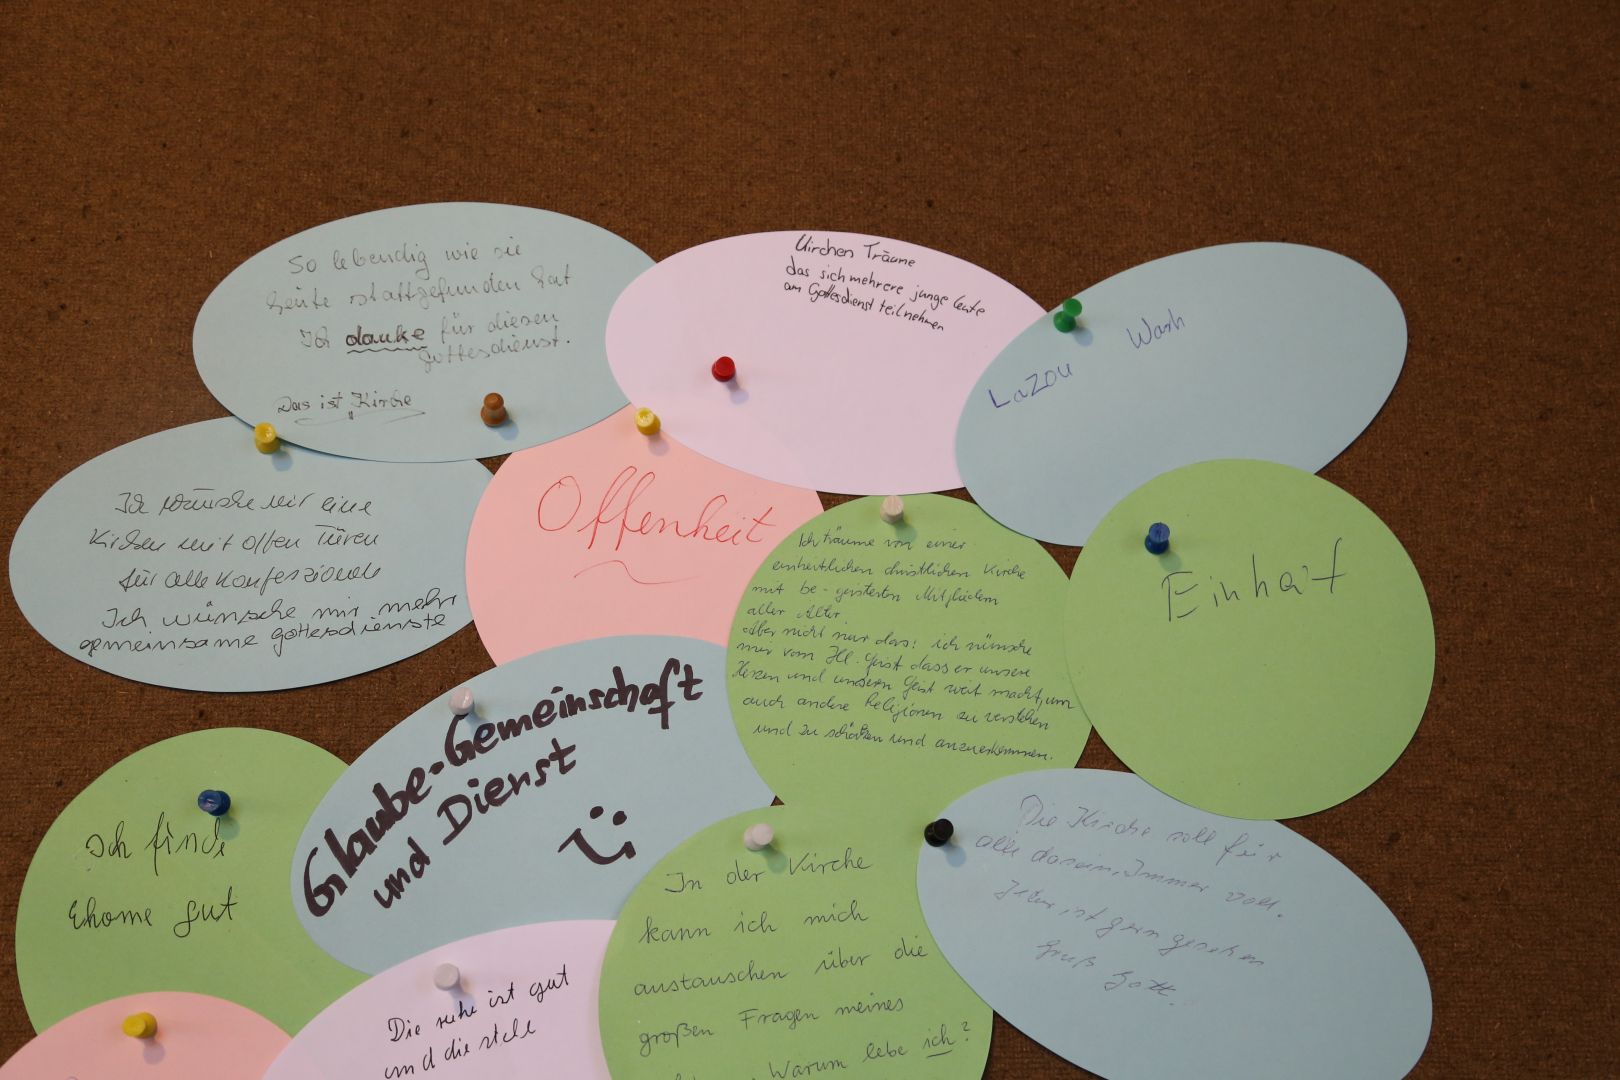 So lebendig wie sie
heute stattgefunden hat
Ich danke für diesen
Gottesdienst.
Das ist Kirche
Kirchen Träume
das sich mehrere junge leute
am Gottesdienst teilnehmen
LaZOU Wash
Ich wünsche mir eine
Kirchen mit offen Türen
für alle Konfessionen
Ich wünsche mir mehr
gemeinsame gottesdienste
Offenheit
Ich träume von einer
einheitlichen christlichen Kirche
mit be-geisterten Mitgliedern
aller Alter.
Aber nicht nur das: ich wünsche
mir vom Hl. Geist dass er unsere
Herzen und unseren Geist weit macht, um
auch andere Religionen zu verstehen
und zu schätzen und anzuerkennen.
Einhait
Glaube-Gemeinschaft
und Dienst
Ich finde
gut
In der Kirche
kann ich mich
austauschen über die
großen Fragen meines
Warum lebe ich?
Die Kirche soll für
alle dasein, Immer voll.
Jeder ist gern gesehen
Gruß Gott.
Die ruhe ist gut
und die stille